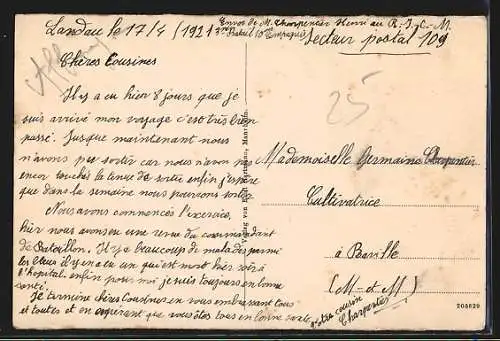 Landau le 17/4/1921
Envoi de M. Charpentier Henri au R.I.C.M.
3me Bataillon 10e Compagnie
Secteur postal 109
Chères Cousines
Il y a eu hier 8 jours que je
suis arrivé mon voyage c'est très bien
passé. Jusque maintenant nous
n'avons pu sortir car nous n'avon pas
encor touchés la tenue de sortie enfin j'espère
que dans la semaine nous pourrons sortir
Nous avons commencés l'exercice,
hier nous avons eu une revue du commandant
de Bataillon. Il y a beaucoup de malades parmi
les bleus il y en a eu un qui est mort hier soir à
l'hopital. enfin pour moi je suis toujours en bonne
santé.
Je termine chères Cousines en vous embrassant tous
et toutes et en espérant que vous êtes tous en bonne santé
votre cousin
Charpentier
25
Mademoiselle Germaine Charpentier
Cultivatrice
à
(M-et-M)
208829